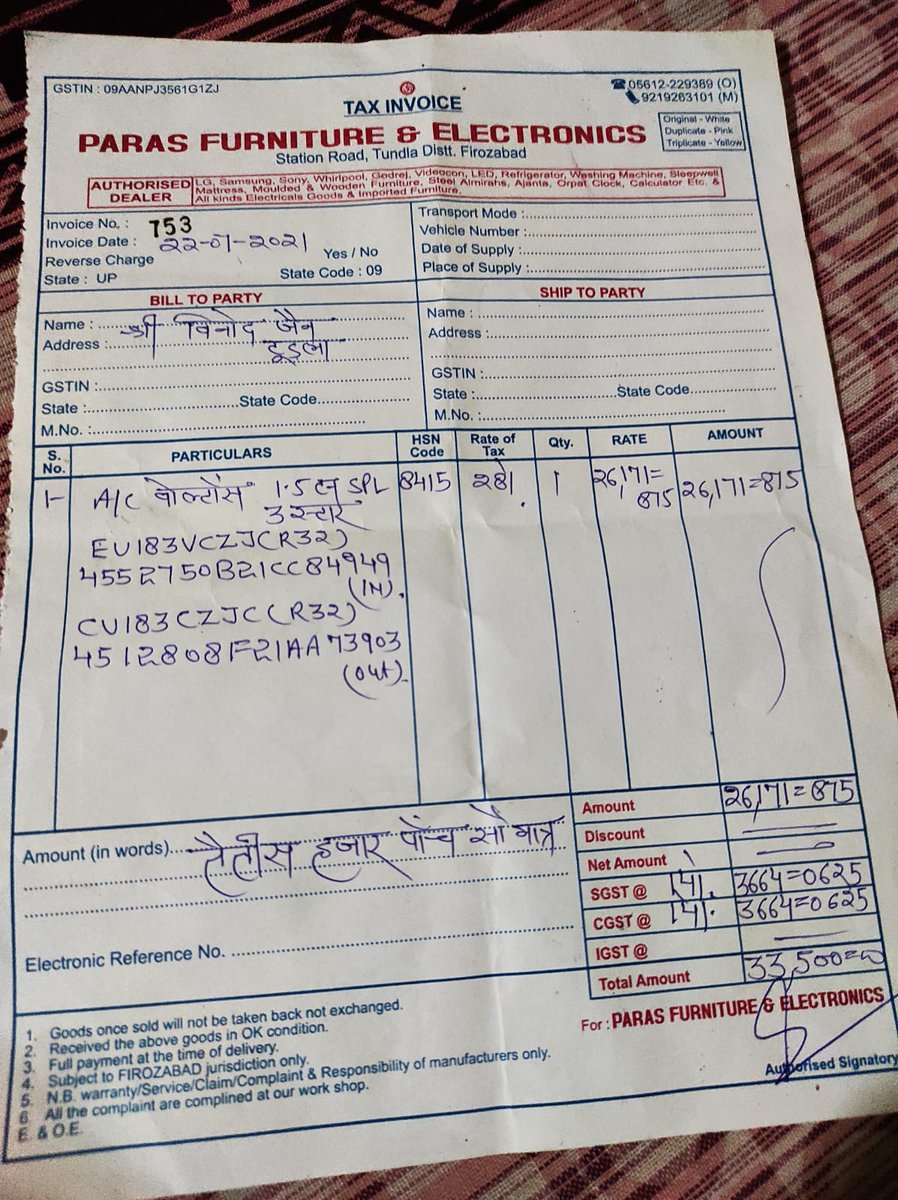 GSTIN : 09AANPJ3561G1ZJ
☎05612-229389 (O)
9219263101 (M)
TAX INVOICE
Original - White
Duplicate - Pink
Triplicate - Yellow
PARAS FURNITURE & ELECTRONICS
Station Road, Tundla Distt. Firozabad
AUTHORISED DEALER
LG, Samsung, Sony, Whirlpool, Godrej, Videocon, LED, Refrigerator, Washing Machine, Sleepwell
Mattress, Moulded & Wooden Furniture, Steel Almirahs, Ajanta, Orpat Clock, Calculator Etc. &
All kinds Electricals Goods & Imported Furniture.
Invoice No. : 753
Invoice Date : 22-07-2021
Reverse Charge Yes / No
State : UP State Code : 09
Transport Mode :
Vehicle Number :
Date of Supply :
Place of Supply :
BILL TO PARTY
Name : श्री विनोद जैन
Address : टूंडला
GSTIN :
State : State Code
M.No. :
SHIP TO PARTY
Name :
Address :
GSTIN :
State : State Code
M.No. :
S. No. PARTICULARS HSN Code Rate of Tax Qty. RATE AMOUNT
1- A/C वोल्टास 1.5 टन SPL 8415 28% 1 26,171=875 26,171=875
3 स्टार
EU183VCZJ(R32)
4552750B21CC84949
(IN).
CU183CZJC(R32)
4512808F21AA73903
(out).
Amount 26,171=875
Discount
Net Amount
SGST @ 14%. 3664=0625
CGST @ 14%. 3664=0625
IGST @
Total Amount 33,500=00
Amount (in words) तैतीस हजार पाँच सौ मात्र
Electronic Reference No.
1. Goods once sold will not be taken back not exchanged.
2. Received the above goods in OK condition.
3. Full payment at the time of delivery.
4. Subject to FIROZABAD jurisdiction only.
5. N.B. warranty/Service/Claim/Complaint & Responsibility of manufacturers only.
6 All the complaint are complined at our work shop.
E. & O.E.
For : PARAS FURNITURE & ELECTRONICS
Authorised Signatory